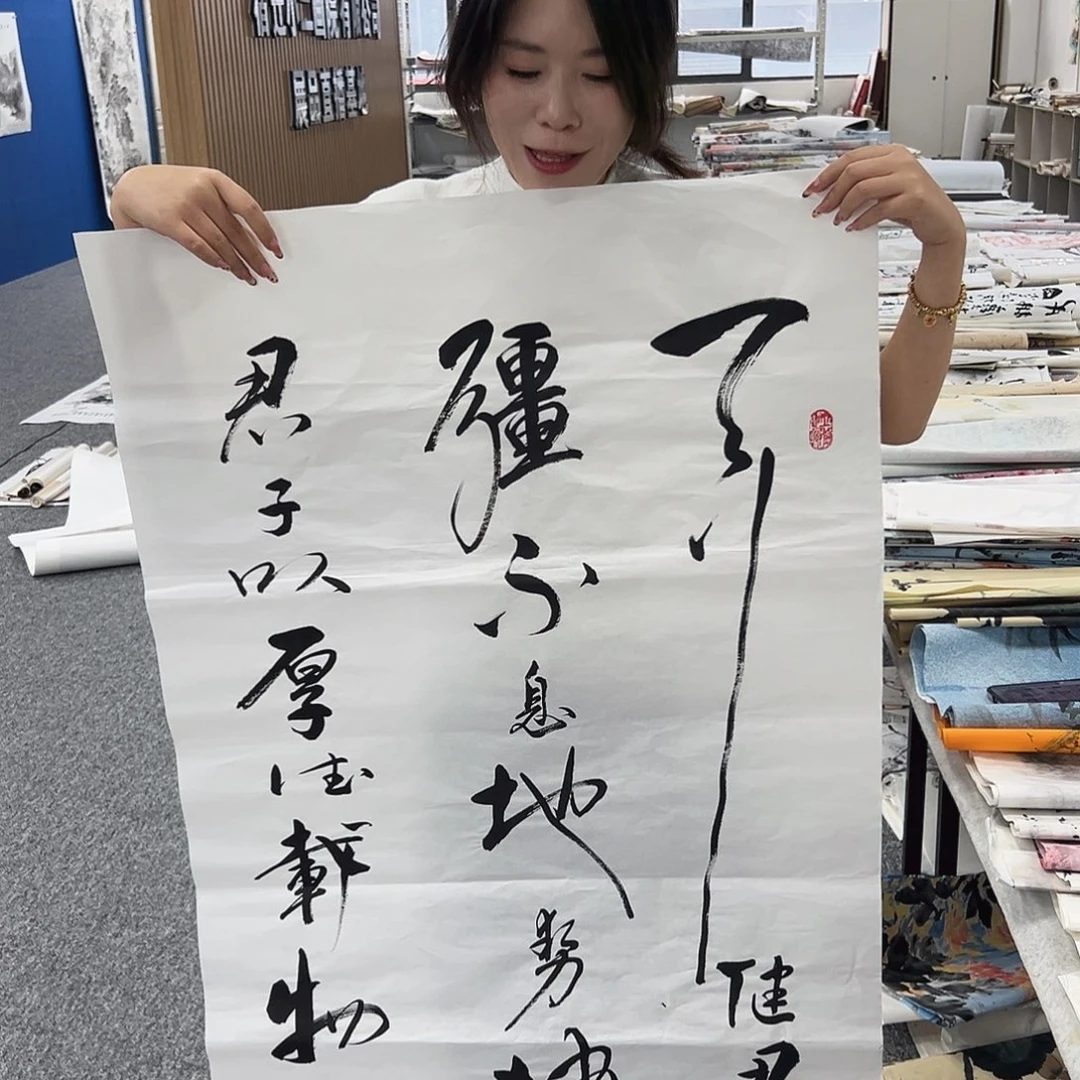 天行健君
彊不息地勢坤
君子以厚德載物